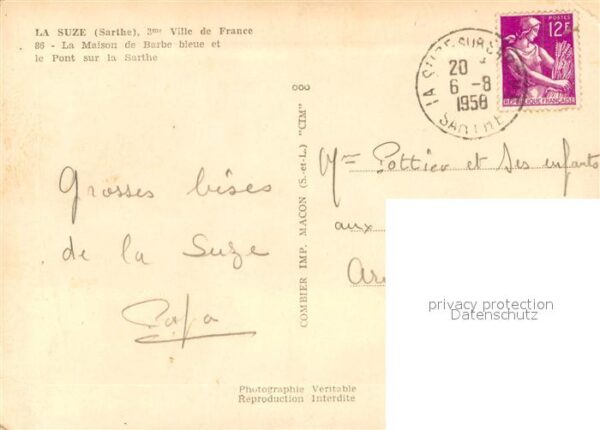 LA SUZE (Sarthe), 3me Ville de France
86 - La Maison de Barbe bleue et
le Pont sur la Sarthe
LA SUZE-SUR-SARTHE
20
6 -8
1958
SARTHE
POSTES
12F
REPUBLIQUE FRANÇAISE
Grosses bises
de la Suze
Papa
COMBIER IMP. MACON (S.-et-L.) "CIM"
Mme Pottier et Ses enfants
aux
privacy protection
Datenschutz
Photographie Veritable
Reproduction Interdite